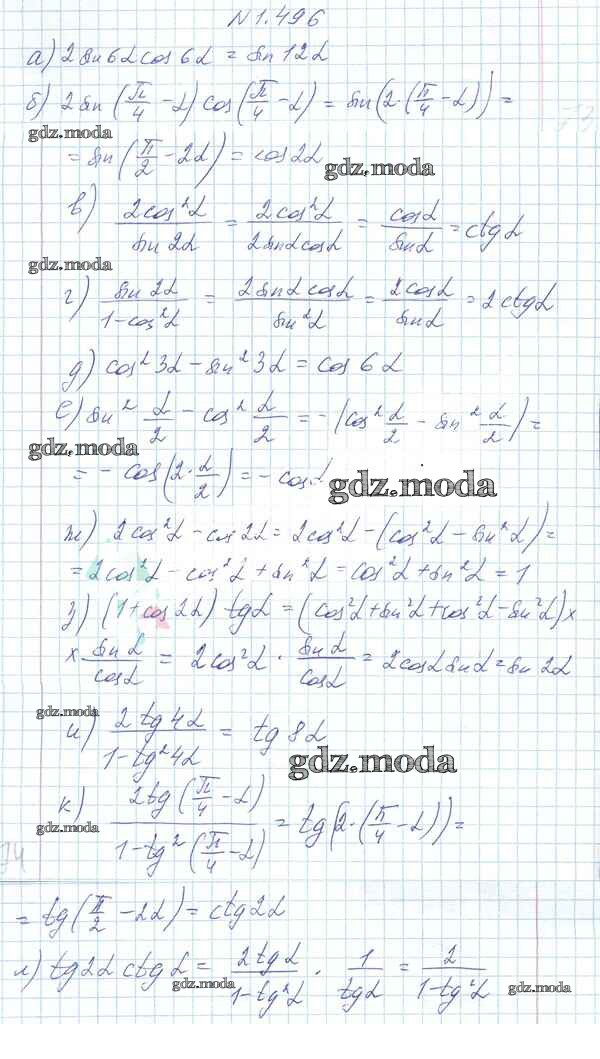 N 1.496
а) 2 sin 6α cos 6α = sin 12α
б) 2 sin (π/4 − α) cos (π/4 − α) = sin (2·(π/4 − α)) =
gdz.moda
= sin (π/2 − 2α) = cos 2α
gdz.moda
в) 2cos²α / sin 2α = 2cos²α / 2 sin α cos α = cos α / sin α = ctg α
gdz.moda
г) sin 2α / 1−cos²α = 2 sin α cos α / sin²α = 2cos α / sin α = 2 ctg α
д) cos² 3α − sin² 3α = cos 6α
е) sin² α/2 − cos² α/2 = −(cos² α/2 − sin² α/2) =
gdz.moda
= − cos (2·α/2) = − cos α
gdz.moda
ж) 2cos²α − cos 2α = 2cos²α − (cos²α − sin²α) =
= 2cos²α − cos²α + sin²α = cos²α + sin²α = 1
з) (1 + cos 2α) tg α = (cos²α + sin²α + cos²α − sin²α) ×
× sin α / cos α = 2cos²α · sin α / cos α = 2cos α sin α = sin 2α
gdz.moda
и) 2 tg 4α / 1−tg² 4α = tg 8α
gdz.moda
к) 2tg (π/4 − α) / 1−tg² (π/4 − α) = tg (2·(π/4 − α)) =
gdz.moda
= tg (π/2 − 2α) = ctg 2α
л) tg 2α ctg α = 2 tg α / 1−tg²α · 1 / tg α = 2 / 1−tg²α
gdz.moda
gdz.moda